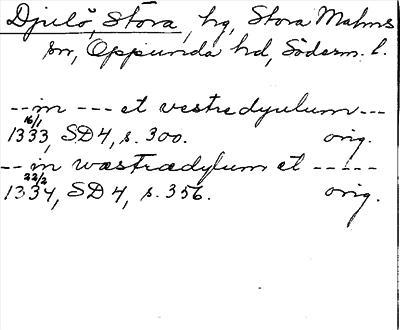 Djulö, Stora, hg, Stora Malms
sn, Oppunda hd, Söderm. l.
--in --- et vestredyulum---
16/1
1333, SD 4, s. 300. orig.
-- in wæstrædylum et -----
22/2
1334, SD 4, s. 356. orig.